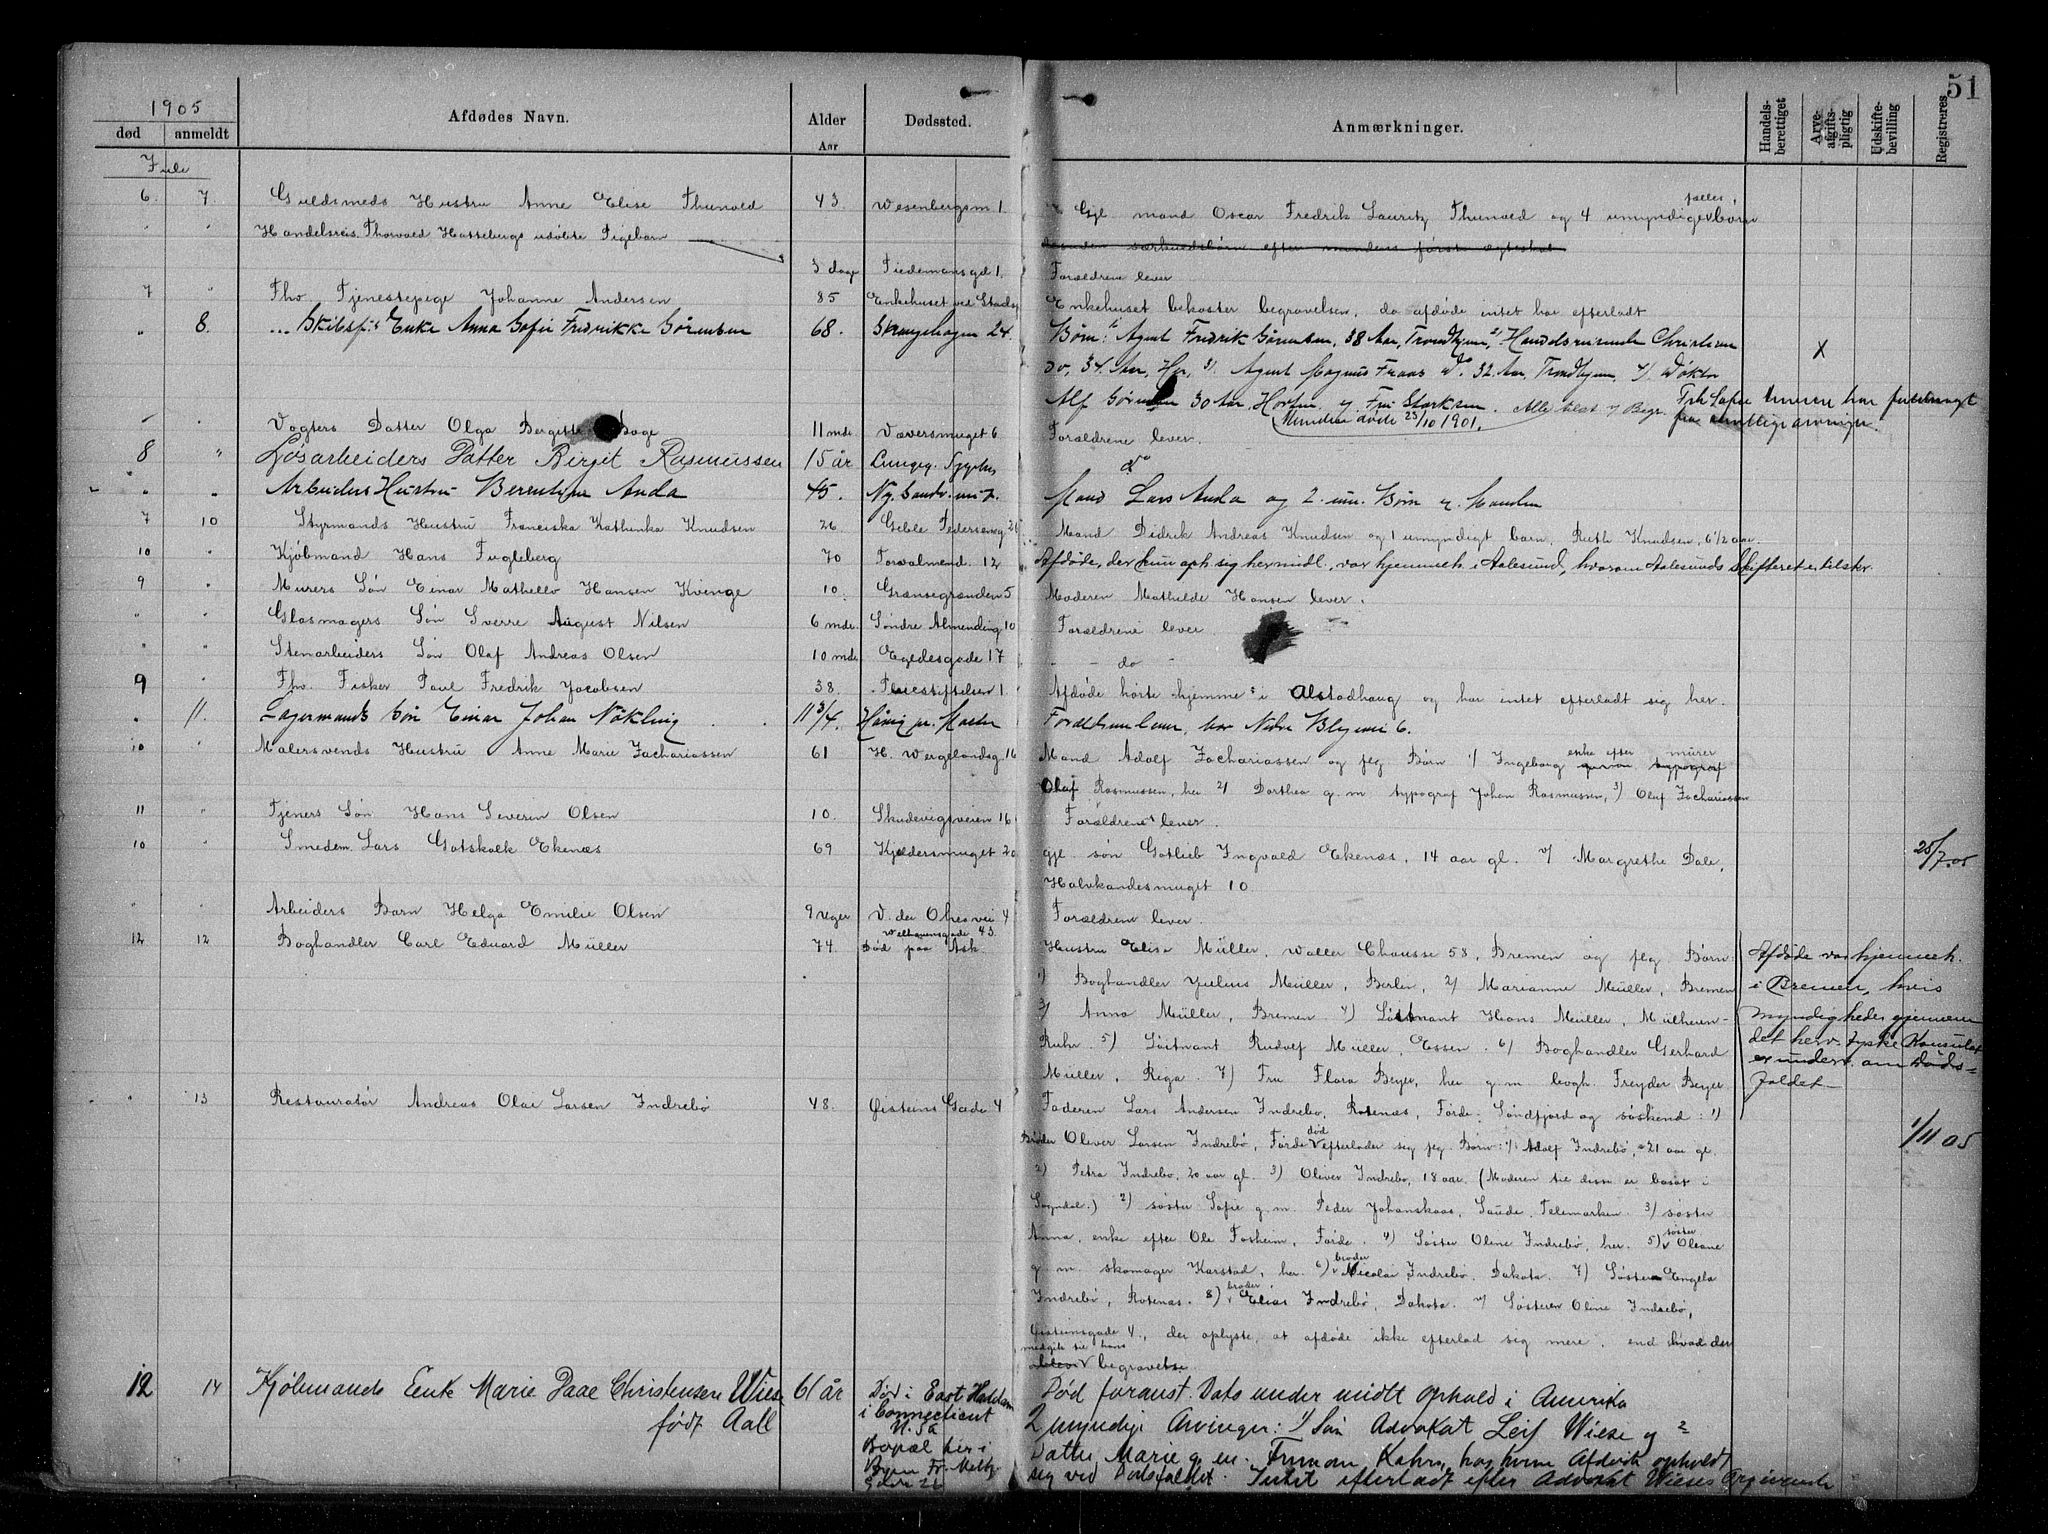 51
1905
død anmeldt Afdødes Navn. Alder Aar Dødssted. Anmærkninger. Handels-berettiget Arve-afgifts-pligtig Udskifte-bevilling Registreres
Juli
6. 7. Guldsmeds Hustru Anne Elise Thunold 43. Wesenbergsm 1. Gjl mand Oscar Fredrik Lauritz Thunold og 4 umyndige fælles børn
" " Handelsreis. Thorvald Hattebergs udøbte Pigebarn
3 dage Tiedemansgd 1. Forældrene lever
7 " Fhv. Tjenestepige Johanne Andersen 85 Enkehuset ved Stads Enkehuset bekoster begravelsen, da afdøde intet har efterladt
" 8. Skibsf's Enke Anna Sofie Fredrikke Sørensen 68. Skangehagen 24. Børn: 1) Agent Fredrik Sørensen, 38 Aar, Trondhjem, 2) Handelsreisende Christian X
do, 34 Aar, Her, 3) Agent Magnus Frans do 32 Aar, Trondhjem, 4) Doktor
Alf Sørensen 30 Aar, Horten
Manden døde 23/10 1901.
" " Vogters Datter Olga Bergitte Boge 11 mdr Væversmuget 6 Forældrene lever.
8 " Løsarbeiders Datter Birgit Rasmussen 15 år Lungeg. Sygehus do
" " Arbeiders Hustru Berentine Anda 45. Ny Sandv. m. 7. Mand Lars Anda og 2 um. Børn v. Manden
7 10 Styrmands Hustru Franciska Kathinka Knudsen 26 Geble Pedersensg 26 Mand Didrik Andreas Knudsen og 1 umyndigt barn, Ruth Knudsen, 6 1/2 aar.
10 " Kjøbmand Hans Fugleberg 70 Torvalmend. 12 Afdøde, der kun oph. sig her midl., var hjemmeh. i Aalesund, hvorom Aalesunds Skifteret er tilskr.
9 " Murers Søn Einar Mathello Hansen Kvinge 10 Grænsegrænden 5 Moderen Mathilde Hansen lever.
" " Glasmagers Søn Sverre August Nilsen 6 mdr. Søndre Almending 10 Forældrene lever
" " Stenarbeiders Søn Olaf Andreas Olsen 10 mdr Egedesgade 17 - - do -
9 " Fhv. Fisker Paul Fredrik Jacobsen 38. Pleiestiftelsen 1. Afdøde hørte hjemme i Alstadhaug og har intet efterladt sig her.
" 11. Lagermands Søn Einar Johan Nökling 11 3/4 Forældrene lever, bor Nedre Blegevei 6.
10 " Malersvends Hustru Anne Marie Zachariassen 61 H. Wergelandsg 16 Mand Adolf Zachariassen og flg Børn 1) Ingeborg enke efter murer
Olaf Rasmussen, her 2) Dorthea g.m. typograf Johan Rasmussen, 3) Olaf Zachariassen
11 " Tjeners Søn Hans Severin Olsen 10. Skudevigsveien 16 Forældrene lever.
10 " Smedem. Lars Gotskalk Ekenæs 69 Kjeldersmuget 20 gjl. søn Gotlieb Ingvald Ekenæs, 14 aar gl. v/ Margrethe Dale, 25/7.05
Halvkandesmuget 10.
" " Arbeiders Barn Helga Emilie Olsen 9 uger V. der Ohesvei 4 Forældrene lever.
12 12 Boghandler Carl Eduard Müller 74. Welhavensgade 43. Død paa Ask. Hustru Elise Müller, Waller Chausse 58, Bremen og flg. Børn:
1) Boghandler Julius Müller, Berlin, 2) Marianne Müller, Bremen
3) Anna Müller, Bremen 4) Løitnant Hans Müller, Mülheim-
Ruhr 5) Løitnant Rudolf Müller, Essen. 6) Boghandler Gerhard
Müller, Riga. 7) Fru Flora Beyer, her g.m. bogh. Freyder Beyer
Afdøde var hjemmeh.
i Bremen, hvis
myndigheder gjennem
det herv. tyske Konsulat
er underr. om Døds-
faldet.
" 13 Restauratør Andreas Olai Larsen Indrebø 48. Øisteins Gade 4 Faderen Lars Andersen Indrebø, Rotenæs, Førde, Søndfjord og søskend: 1) 1/11 05
Broder Oliver Larsen Indrebø, Førde død efterlader sig flg. Børn: 1) Adolf Indrebø, 21 aar gl.
2) Petra Indrebø, 20 aar gl. 3) Oliver Indrebø, 18 aar. (Moderen til disse er bosat i
Sogndal.) 2) søster Sofie g.m. Peder Johanskaas, Saude, Telemarken. 3) søster
Anna, enke efter Ole Fosheim, Førde. 4) Søster Oline Indrebø, her. 5) søster Olsane
g.m. skomager Karstad, her. 6) broder Nicolai Indrebø, Dakota. 7) Søster Engela
Indrebø, Rotenæs. 8) broder Elias Indrebø, Dakota. v/ Søsteren Oline Indrebø,
Øisteinsgade 4., der oplyste, at afdøde ikke efterlod sig mere, end hvad der
medgik til hans begravelse.
12 14 Kjøbmands Enke Marie Daae Christensen Wiese født Aall 61 år Død i East Haddam i Connecticut Død foranst. Dato under midlt ophold i Amerika
Bopæl her i Byen Fr. Meltz. Gade 26
2 myndige Arvinger: 1) Søn Advokat Leif Wiese og 2
Datter Marie g. m. Truman Kahrs, hos hvem Afdøde opholdt
sig ved Dødsfaldet. Intet efterladt efter Advokat Wieses Opgivende